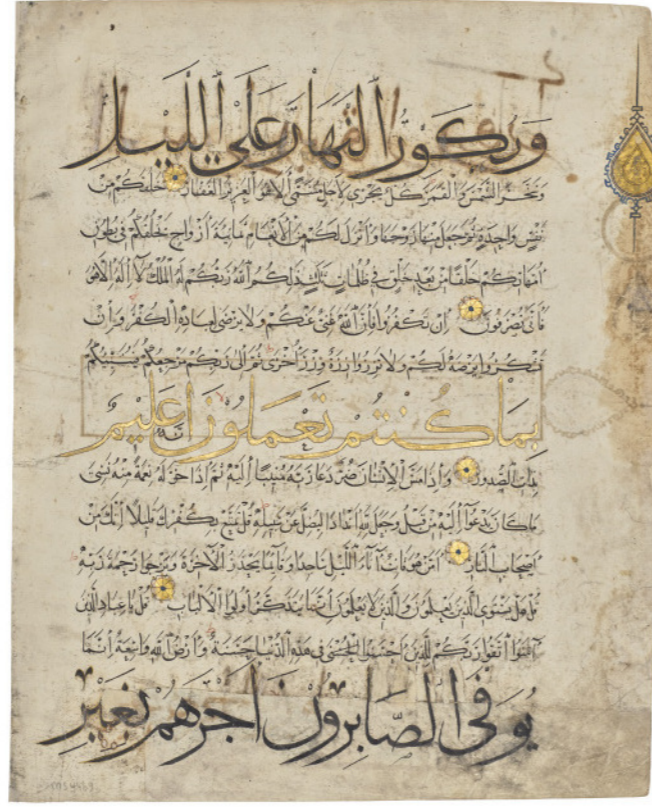 ويكور النهار على الليل
وسخر الشمس والقمر كل يجري لأجل مسمى ألا هو العزيز الغفار خلقكم من
نفس واحدة ثم جعل منها زوجها وأنزل لكم من الأنعام ثمانية أزواج يخلقكم في بطون
أمهاتكم خلقا من بعد خلق في ظلمات ثلاث ذلكم الله ربكم له الملك لا إله إلا هو
فأنى تصرفون إن تكفروا فإن الله غني عنكم ولا يرضى لعباده الكفر وإن
تشكروا يرضه لكم ولا تزر وازرة وزر أخرى ثم إلى ربكم مرجعكم فينبئكم
بما كنتم تعملون إنه عليم
بذات الصدور وإذا مس الإنسان ضر دعا ربه منيبا إليه ثم إذا خوله نعمة منه نسي
ما كان يدعوا إليه من قبل وجعل لله أندادا ليضل عن سبيله قل تمتع بكفرك قليلا إنك من
أصحاب النار أمن هو قانت آناء الليل ساجدا وقائما يحذر الآخرة ويرجوا رحمة ربه
قل هل يستوي الذين يعلمون والذين لا يعلمون إنما يتذكر أولوا الألباب قل يا عباد الذين
آمنوا اتقوا ربكم للذين أحسنوا في هذه الدنيا حسنة وأرض الله واسعة إنما
يوفى الصابرون أجرهم بغير